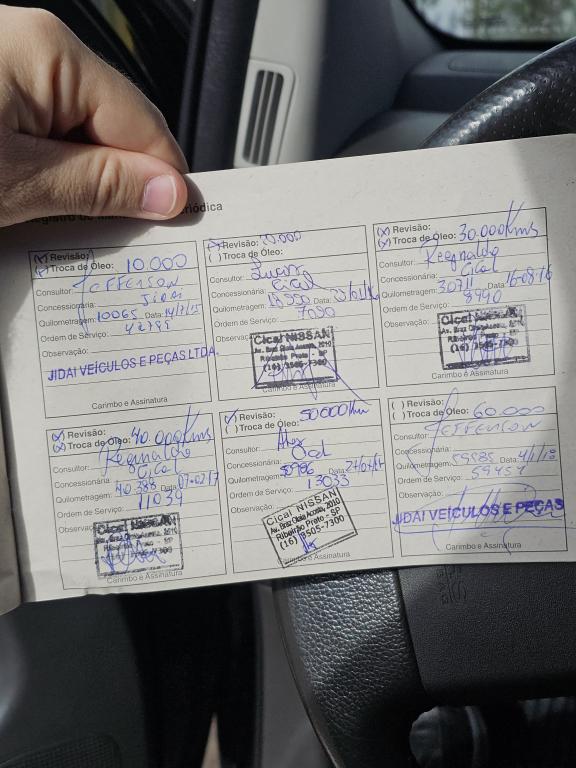 Registro de Man riódica
(X) Revisão: 10.000
(X) Troca de Óleo:
Consultor: Jefferson
Concessionária: Jidai
Quilometragem: 10065 Data: 14/7/15
Ordem de Serviço: 42795
Observação:
JIDAI VEÍCULOS E PEÇAS LTDA.
Carimbo e Assinatura
Revisão: 20.000
( ) Troca de Óleo:
Consultor: Lucas
Concessionária: Cical
Quilometragem: Data:
Ordem de Serviço: 7090
Observação:
Cical NISSAN
Ribeirão Preto - SP
(16) 3505-7300
Carimbo e Assinatura
(X) Revisão: 30.000Kms
(X) Troca de Óleo:
Consultor: Reginaldo
Concessionária: Cical
Quilometragem: 30711 Data: 16-08-16
Ordem de Serviço: 8940
Observação:
Cical NISSAN
Ribeirão Preto - SP
(16) 3505-7300
Carimbo e Assinatura
(X) Revisão: 40.000Kms
(X) Troca de Óleo:
Consultor: Reginaldo
Concessionária: Cical
Quilometragem: 40.388 Data: 07-02-17
Ordem de Serviço: 11034
Observação:
Cical NISSAN
Carimbo e Assinatura
Revisão: 50000Km
( ) Troca de Óleo:
Consultor: Alex
Concessionária: Cical
Quilometragem: Data:
Ordem de Serviço: 13033
Observação:
Cical NISSAN
Ribeirão Preto - SP
(16) 3505-7300
Carimbo e Assinatura
( ) Revisão: 60.000
( ) Troca de Óleo:
Consultor: Jefferson
Concessionária:
Quilometragem: 59985 Data: 4/1/18
Ordem de Serviço: 59457
Observação:
JIDAI VEÍCULOS E PEÇAS
Carimbo e Assinatura